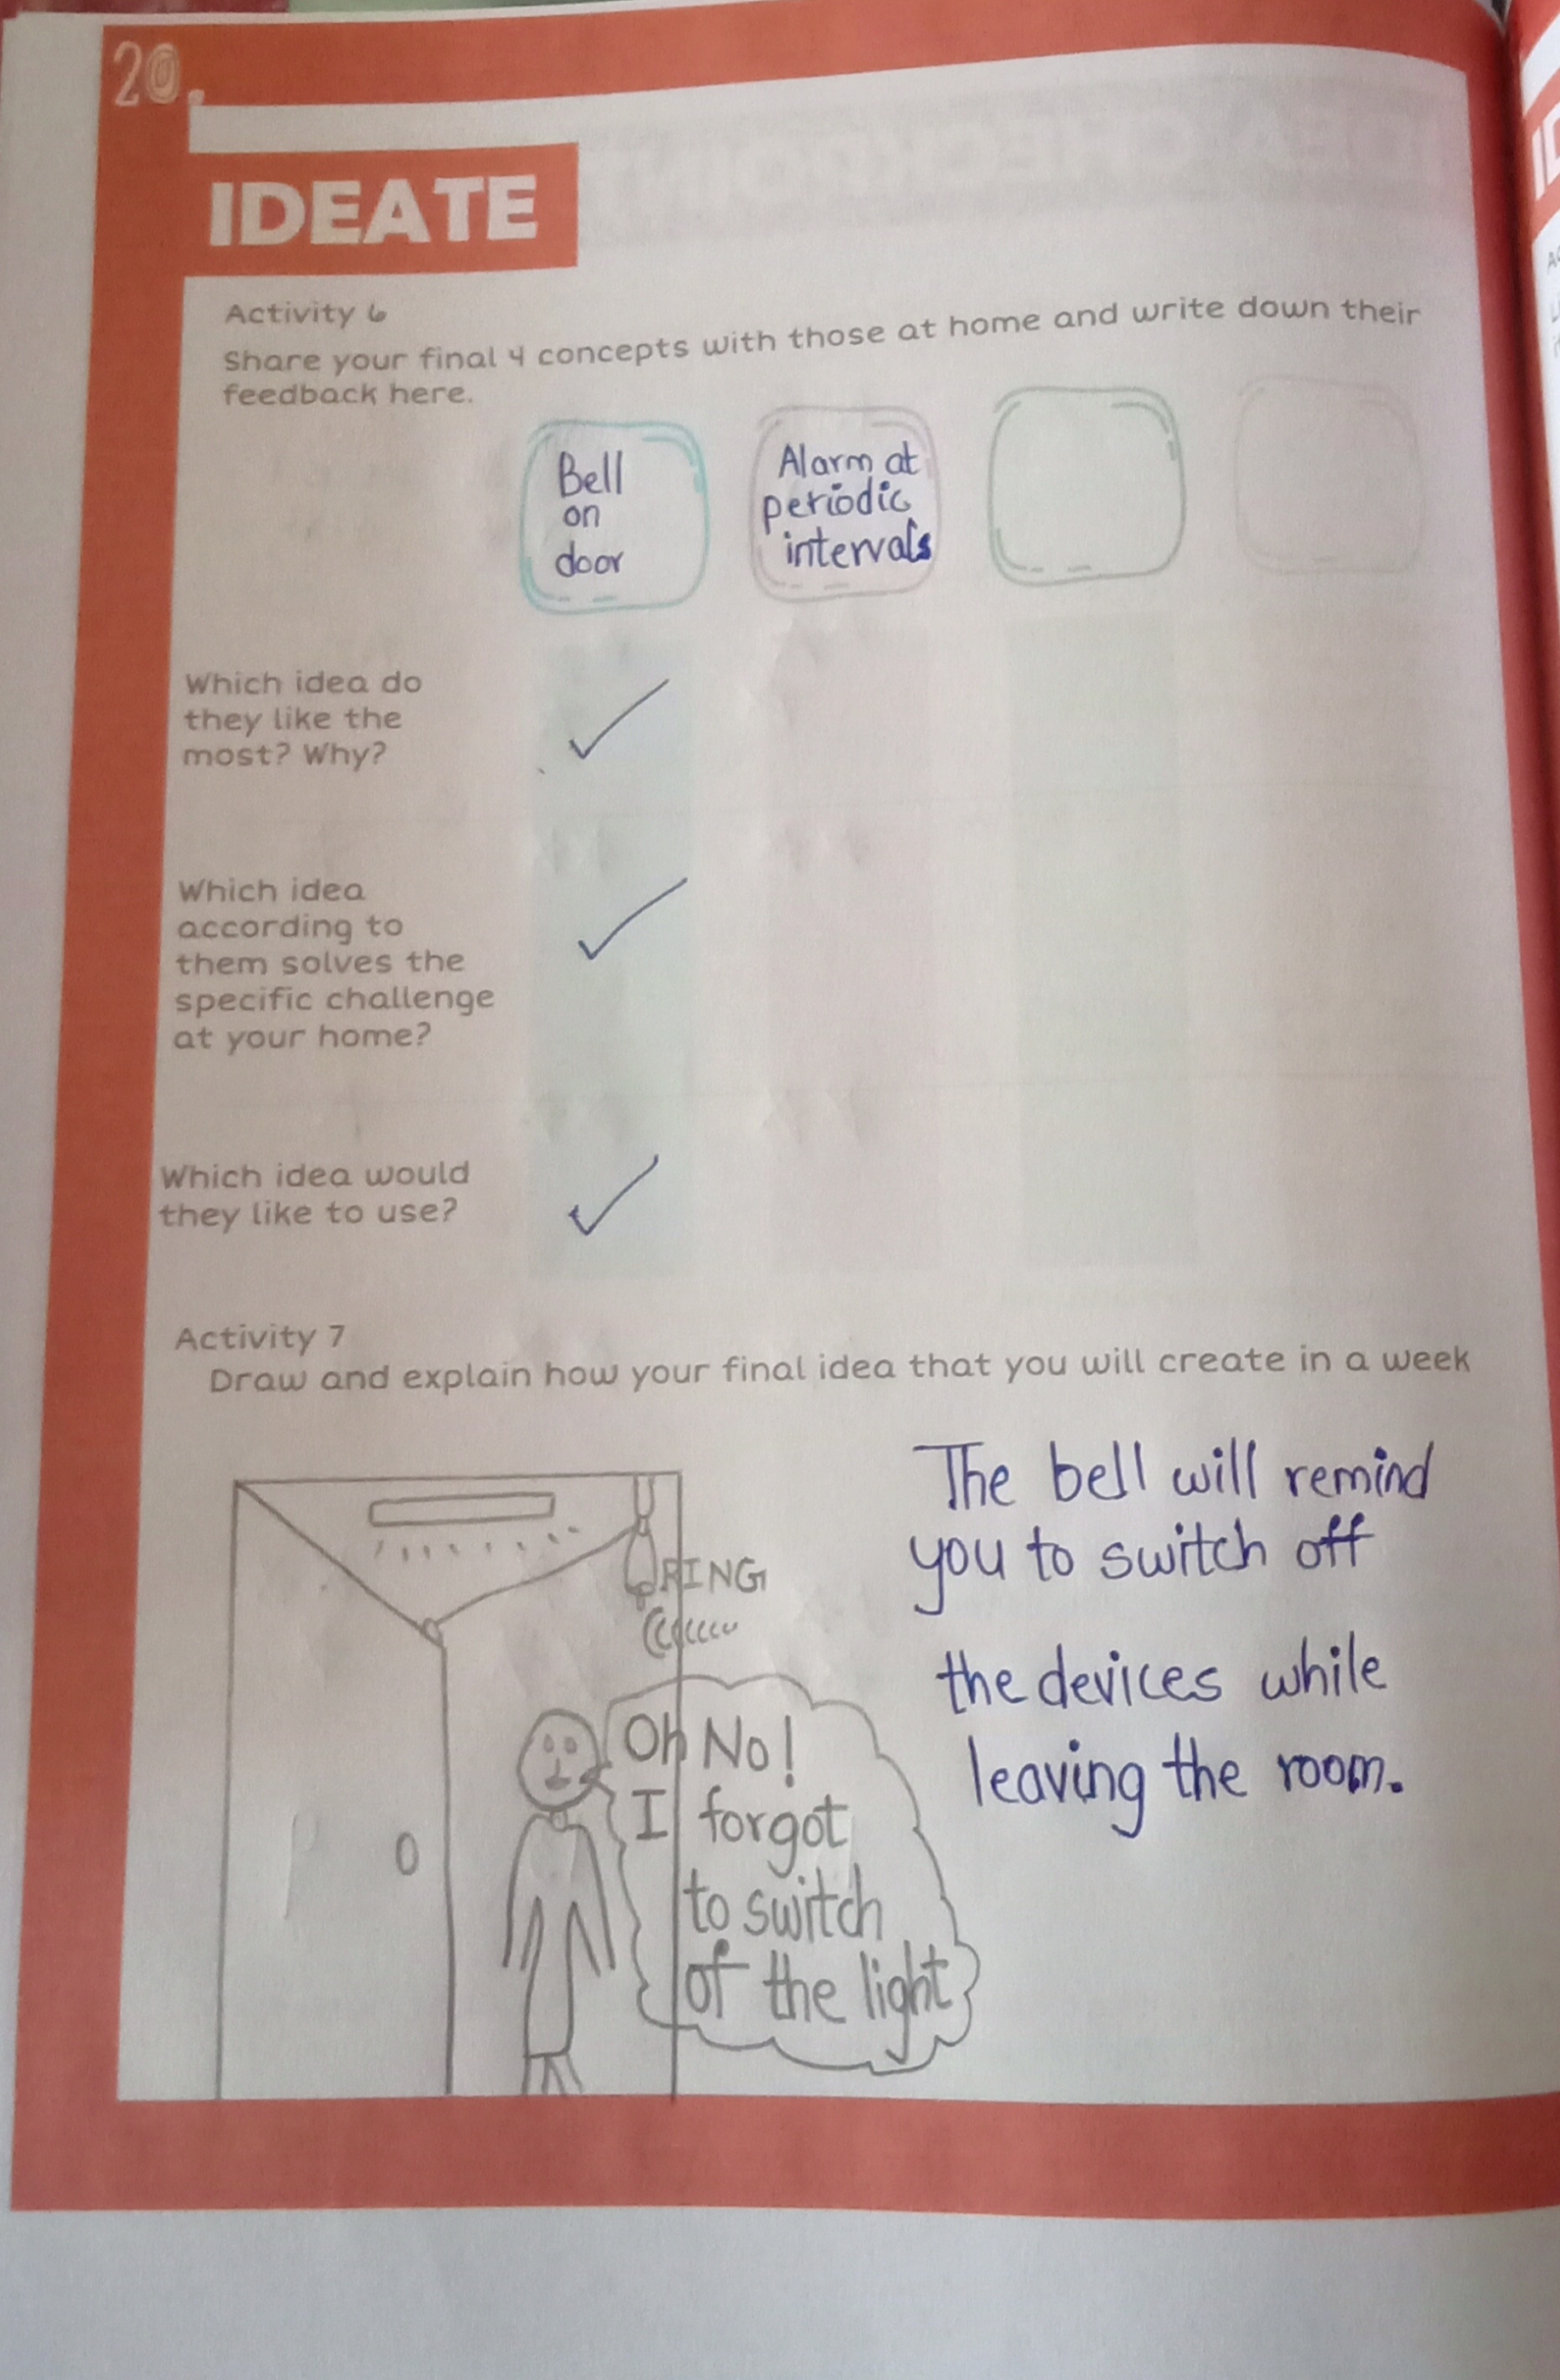 20.
IDEATE
Activity 6
Share your final 4 concepts with those at home and write down their
feedback here.
Bell
on
door
Alarm at
periodic
intervals
Which idea do
they like the
most? Why?
Which idea
according to
them solves the
specific challenge
at your home?
Which idea would
they like to use?
Activity 7
Draw and explain how your final idea that you will create in a week
RING
Oh No!
I forgot
to switch
of the light
The bell will remind
you to switch off
the devices while
leaving the room.